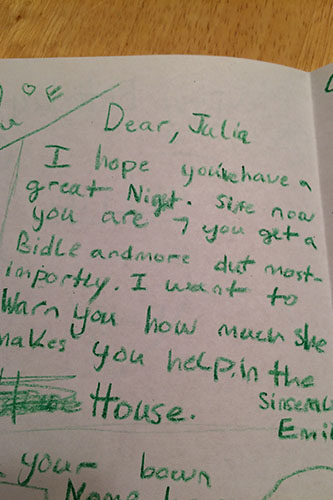 OE
Dear, Julia
I hope you'vehave a
great Night. Sise now
you are 7 you get a
Bidle andmore but most-
importly. I want to
Warn you how much she
makes you help.in the
House.
Sinserel
Emil
your bown
Name